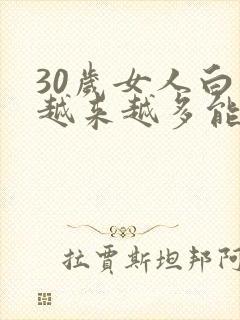 30歲女人白
越来越多能
拉賈斯坦邦阿